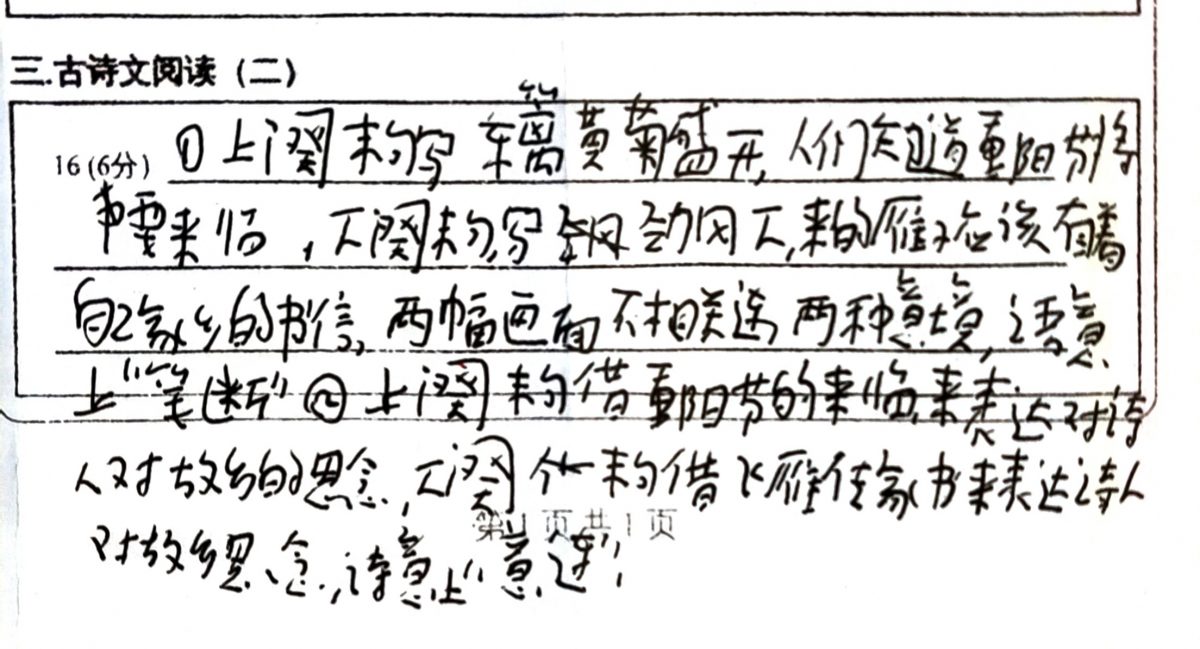 三.古诗文阅读（二）
16(6分) ①上阕末句写东篱黄菊盛开,人们知道重阳节将
要来临,下阕末句写飒飒劲风下,来的雁子应该有带
自己家乡的书信,两幅画面不相关连,两种意境,语意
上"笔断"②上阕末句借重阳节的来临,来表达对诗
人对故乡的思念,下阕末句借飞雁传家书来表达诗人
第1页共1页
对故乡思念,诗意上"意连"